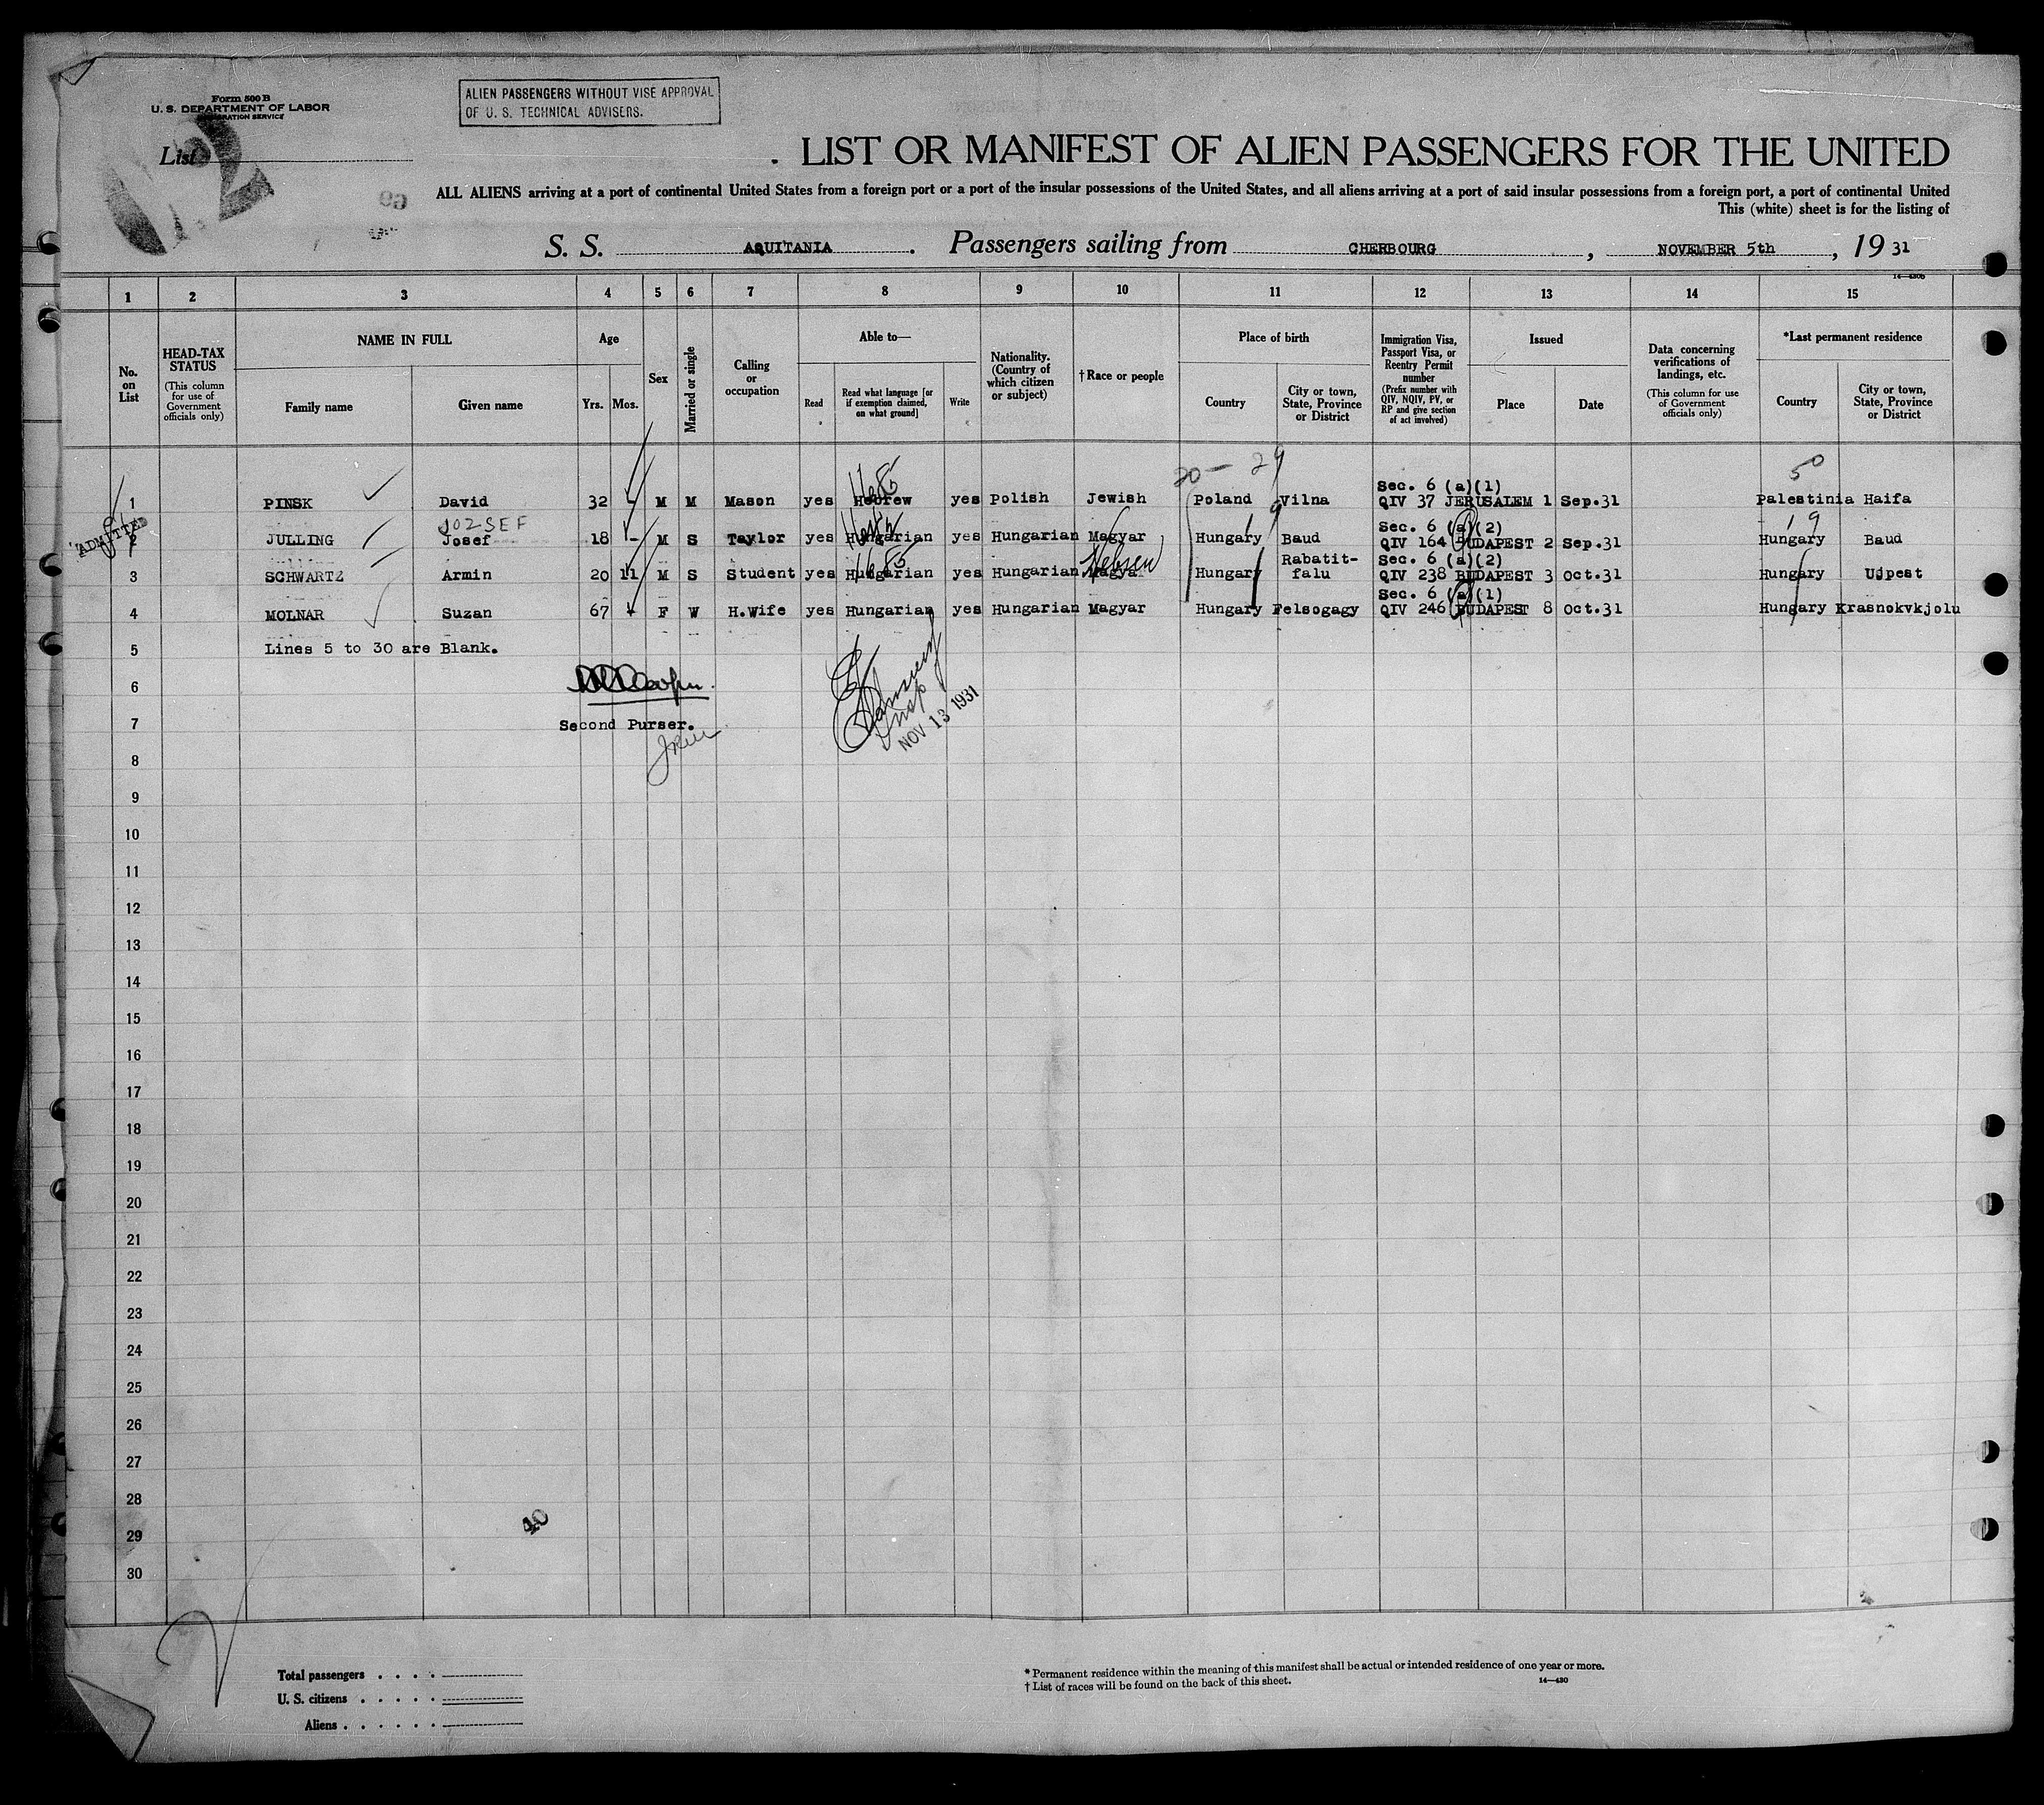 Form 500 B
U. S. DEPARTMENT OF LABOR
IMMIGRATION SERVICE
ALIEN PASSENGERS WITHOUT VISE APPROVAL
OF U. S. TECHNICAL ADVISERS.
List
LIST OR MANIFEST OF ALIEN PASSENGERS FOR THE UNITED
ALL ALIENS arriving at a port of continental United States from a foreign port or a port of the insular possessions of the United States, and all aliens arriving at a port of said insular possessions from a foreign port, a port of continental United
This (white) sheet is for the listing of
S. S. AQUITANIA. Passengers sailing from CHERBOURG, NOVEMBER 5th, 19 31
1 2 3 4 5 6 7 8 9 10 11 12 13 14 15
No. on List
HEAD-TAX STATUS
(This column for use of Government officials only)
NAME IN FULL
Family name
Given name
Age
Yrs. Mos.
Sex
Married or single
Calling or occupation
Able to—
Read
Read what language [or if exemption claimed, on what ground]
Write
Nationality. (Country of which citizen or subject)
†Race or people
Place of birth
Country
City or town, State, Province or District
Immigration Visa, Passport Visa, or Reentry Permit number
(Prefix number with QIV, NQIV, PV, or RP and give section of act involved)
Issued
Place
Date
Data concerning verifications of landings, etc.
(This column for use of Government officials only)
*Last permanent residence
Country
City or town, State, Province or District
20 — 29
50
Sec. 6 (a)(1)
1 PINSK David 32 - M M Mason yes Hebrew yes Polish Jewish Poland Vilna QIV 37 JERUSALEM 1 Sep.31 Palestinia Haifa
JOZSEF
Sec. 6 (a)(2)
ADMITTED
2 JULLING Josef 18 - M S Taylor yes Hungarian yes Hungarian Magyar Hungary Baud QIV 164 BUDAPEST 2 Sep.31 Hungary Baud
Hebrew
Rabatit-
Sec. 6 (a)(2)
3 SCHWARTZ Armin 20 11 M S Student yes Hungarian yes Hungarian Magyar Hungary falu QIV 238 BUDAPEST 3 Oct.31 Hungary Ujpest
Sec. 6 (a)(1)
4 MOLNAR Suzan 67 - F W H.Wife yes Hungarian yes Hungarian Magyar Hungary Felsogagy QIV 246 BUDAPEST 8 Oct.31 Hungary Krasnokvkjolu
5 Lines 5 to 30 are Blank.
6
7 Second Purser.
Insp
NOV 13 1931
8
9
10
11
12
13
14
15
16
17
18
19
20
21
22
23
24
25
26
27
28
29
40
30
Total passengers . . . .
U. S. citizens . . . . .
Aliens . . . . . .
* Permanent residence within the meaning of this manifest shall be actual or intended residence of one year or more.
† List of races will be found on the back of this sheet.
14—430